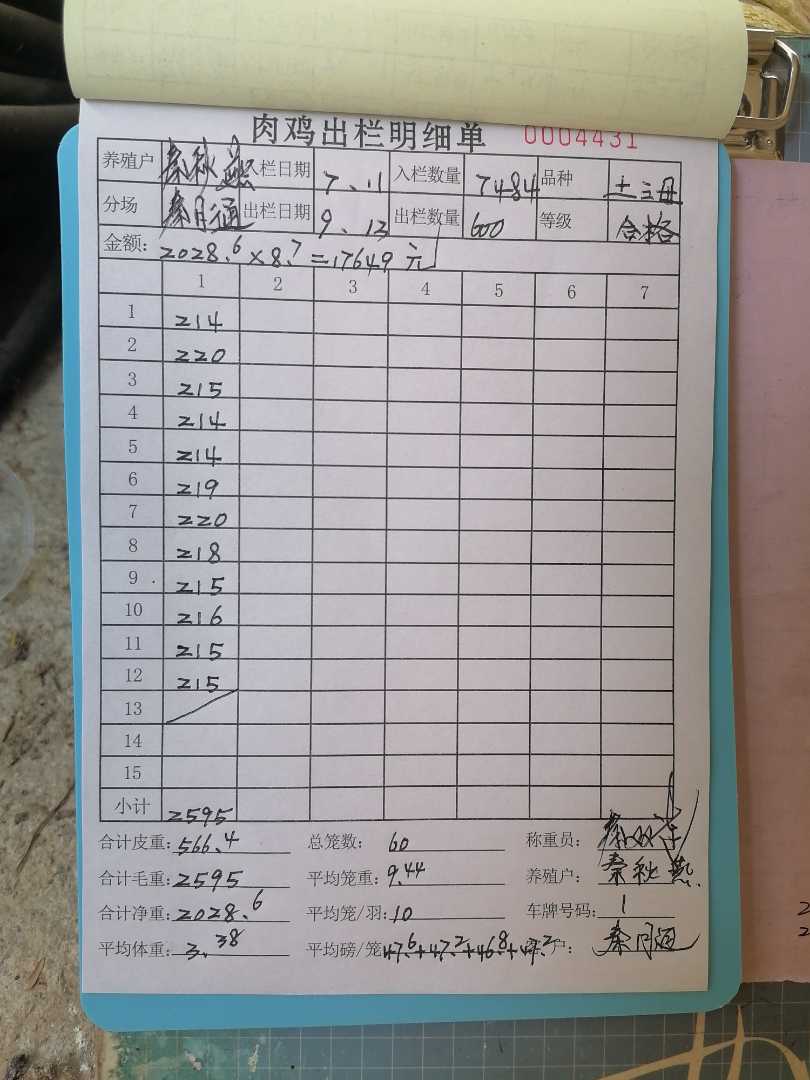 肉鸡出栏明细单 0004431
养殖户 秦秋燕 入栏日期 7.11 入栏数量 7484 品种 土三母
分场 秦月通 出栏日期 9.13 出栏数量 600 等级 合格
金额: 2028.6×8.7=17649元
1 2 3 4 5 6 7
1 214
2 220
3 215
4 214
5 214
6 219
7 220
8 218
9 215
10 216
11 215
12 215
13
14
15
小计 2595
合计皮重: 566.4 总笼数: 60 称重员:
合计毛重: 2595 平均笼重: 9.44 养殖户: 秦秋燕
合计净重: 2028.6 平均笼/羽: 10 车牌号码: 1
平均体重: 3.38 平均磅/笼 47.6+47.2+46.8+47.2 客户: 秦月通